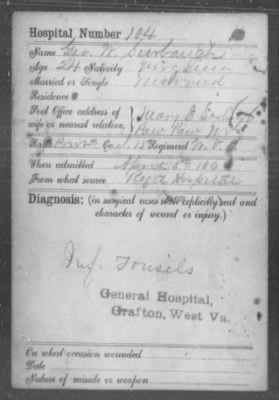 Hospital Number 104
Name Geo. W. Surbaugh
Age 24 Nativity Virginia
Married or Single Married
Residence
Post Office address of
wife or nearest relative, Mary E.
Paw Paw
Rank Co. 15 Regiment
When admitted, April
From what source
Diagnosis: (in surgical cases state explicitly seat and
character of wound or injury.)
Inf. Tonsils
General Hospital,
Grafton, West Va.
On what occasion wounded
Date
Nature of missile or weapon